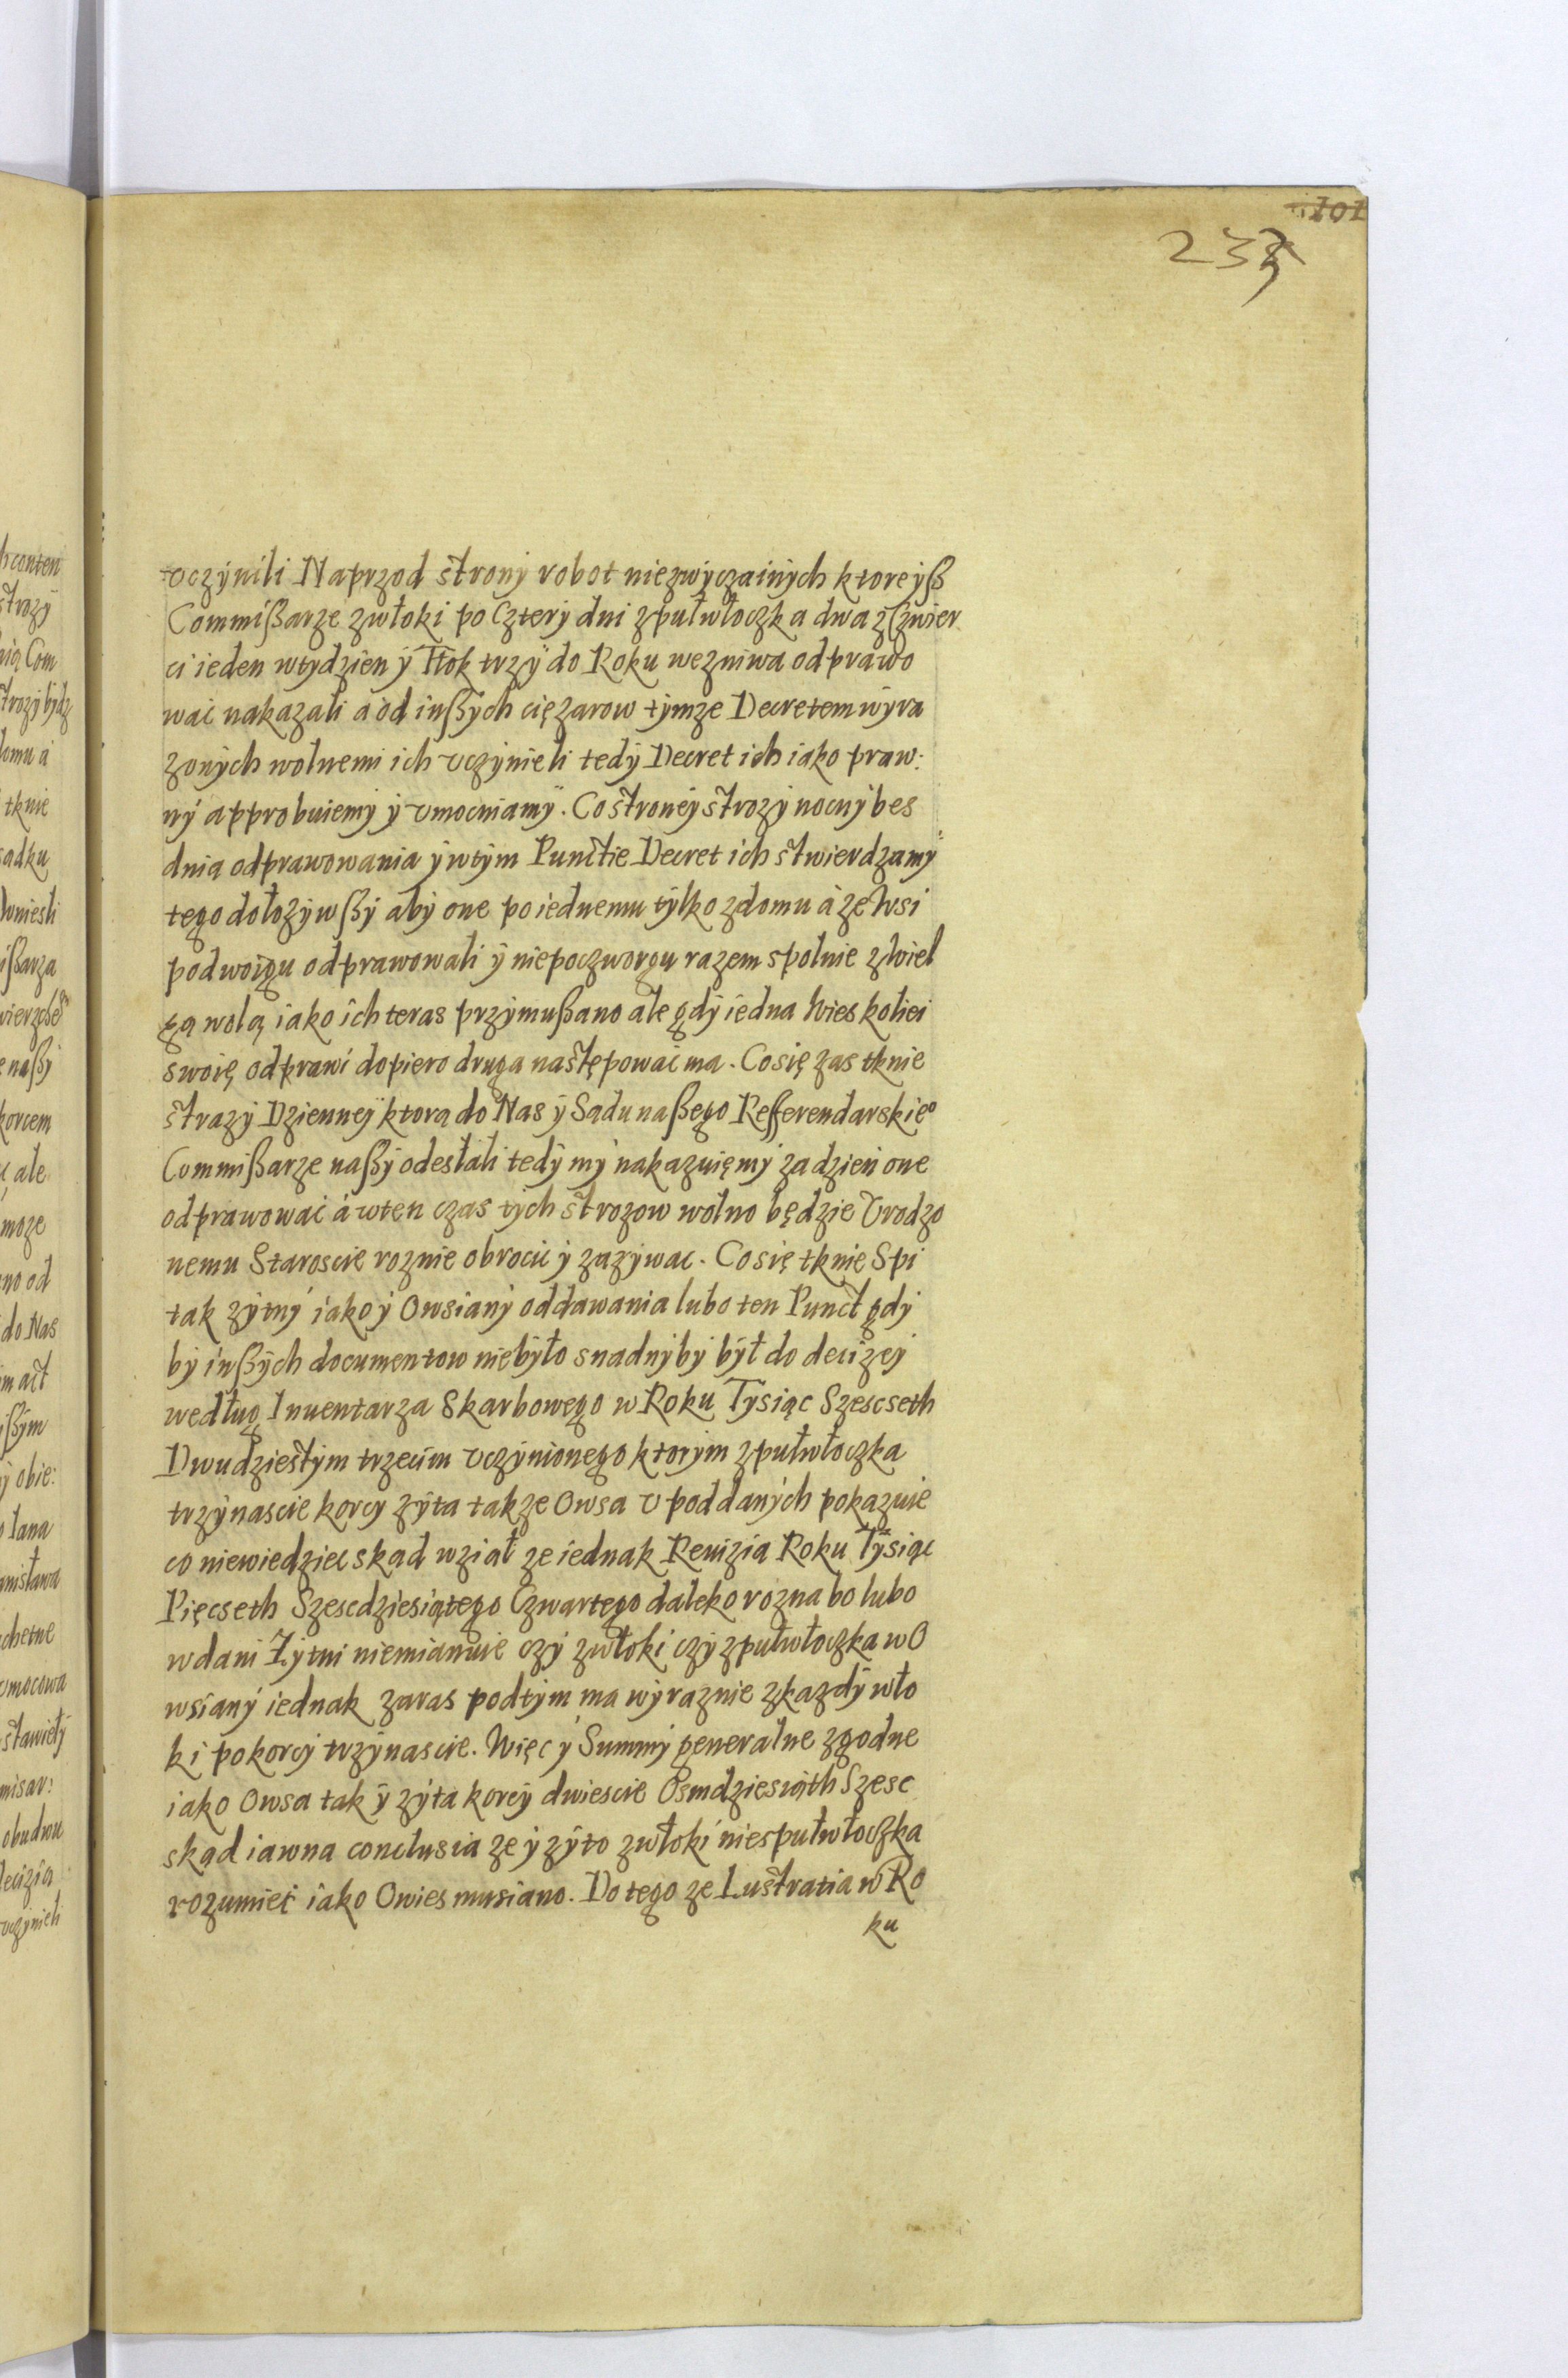 101
233
vczÿnili Naprzod stronÿ robot niezwÿczainÿch ktoreÿß
Commißarze zwłoki po Czterÿ dni zpułwłoczka dwa zCzwier
ci ieden wtydzien ÿ Tłok trzÿ do Roku wezniwa odprawo
wac nakazali a od inßÿch ciężarow tÿmze Decretem wÿra
zonÿch wolnemi ich vczÿnieli tedÿ Decret ich iako praw:
nÿ approbuiemÿ ÿ vmocniamÿ. Co stroneÿ strozÿ nocnÿ bes
dnia odprawowania ÿ wtÿm Punctie Decret ich stwierdzamÿ
tego dołozÿwßÿ abÿ one po iednemu tÿlko zdomu a ze Wsi
podwoÿgu odprawowali ÿ niepoczworgu razem spolnie zwiel
gą wolą iako ich teras przÿmußano ale gdÿ iedna Wies koliei
swoię odprawi dopiero druga następowac ma. Cosię zas tknie
strazÿ Dzienneÿ ktorą do Nas ÿ Sądu naßego Refferendarskie°
Commißarze naßÿ odesłali tedÿ mÿ nakazuięmÿ za dzień one
odprawować á wten czas tÿch strozow wolno będzie Vrodzo
nemu Staroscie roznie obrocic ÿ zazÿwac. Cosię tknie Spi
tak zÿtnÿ iako ÿ Owsianÿ oddawania lubo ten Punct gdÿ
bÿ inßÿch documentow niebÿło snadnÿ bÿ bÿł do decizeÿ
według Inuentarza Skarbowego w Roku Tÿsiąc Szescseth
Dwudziestÿm trzecim vczÿnionego ktorÿm zpułwłoczka
trzÿnascie korcÿ zÿta takze Owsa v poddanÿch pokazuie
co niewiedziec skąd wział ze iednak Reuizia Roku Tÿsiąc
Pięcseth Szescdziesiątego Czwartego daleko rozna bo lubo
wdani Zÿtni niemianuie czÿ zwłoki czÿ zpułwłoczka w O
wsianÿ iednak zaras podtÿm ma wÿraznie zkazdÿ wło
ki pokorcÿ trzÿnascie. Więc ÿ Summÿ generalne zgodne
iako Owsa tak ÿ zÿta korcÿ dwiescie Osmdziesiąth Szesc
skąd iawna conclusia ze ÿ zÿto zwłoki niespułwłoczka
rozumieć iako Owies musiano. Do tego ze Lustratia w Ro
ku